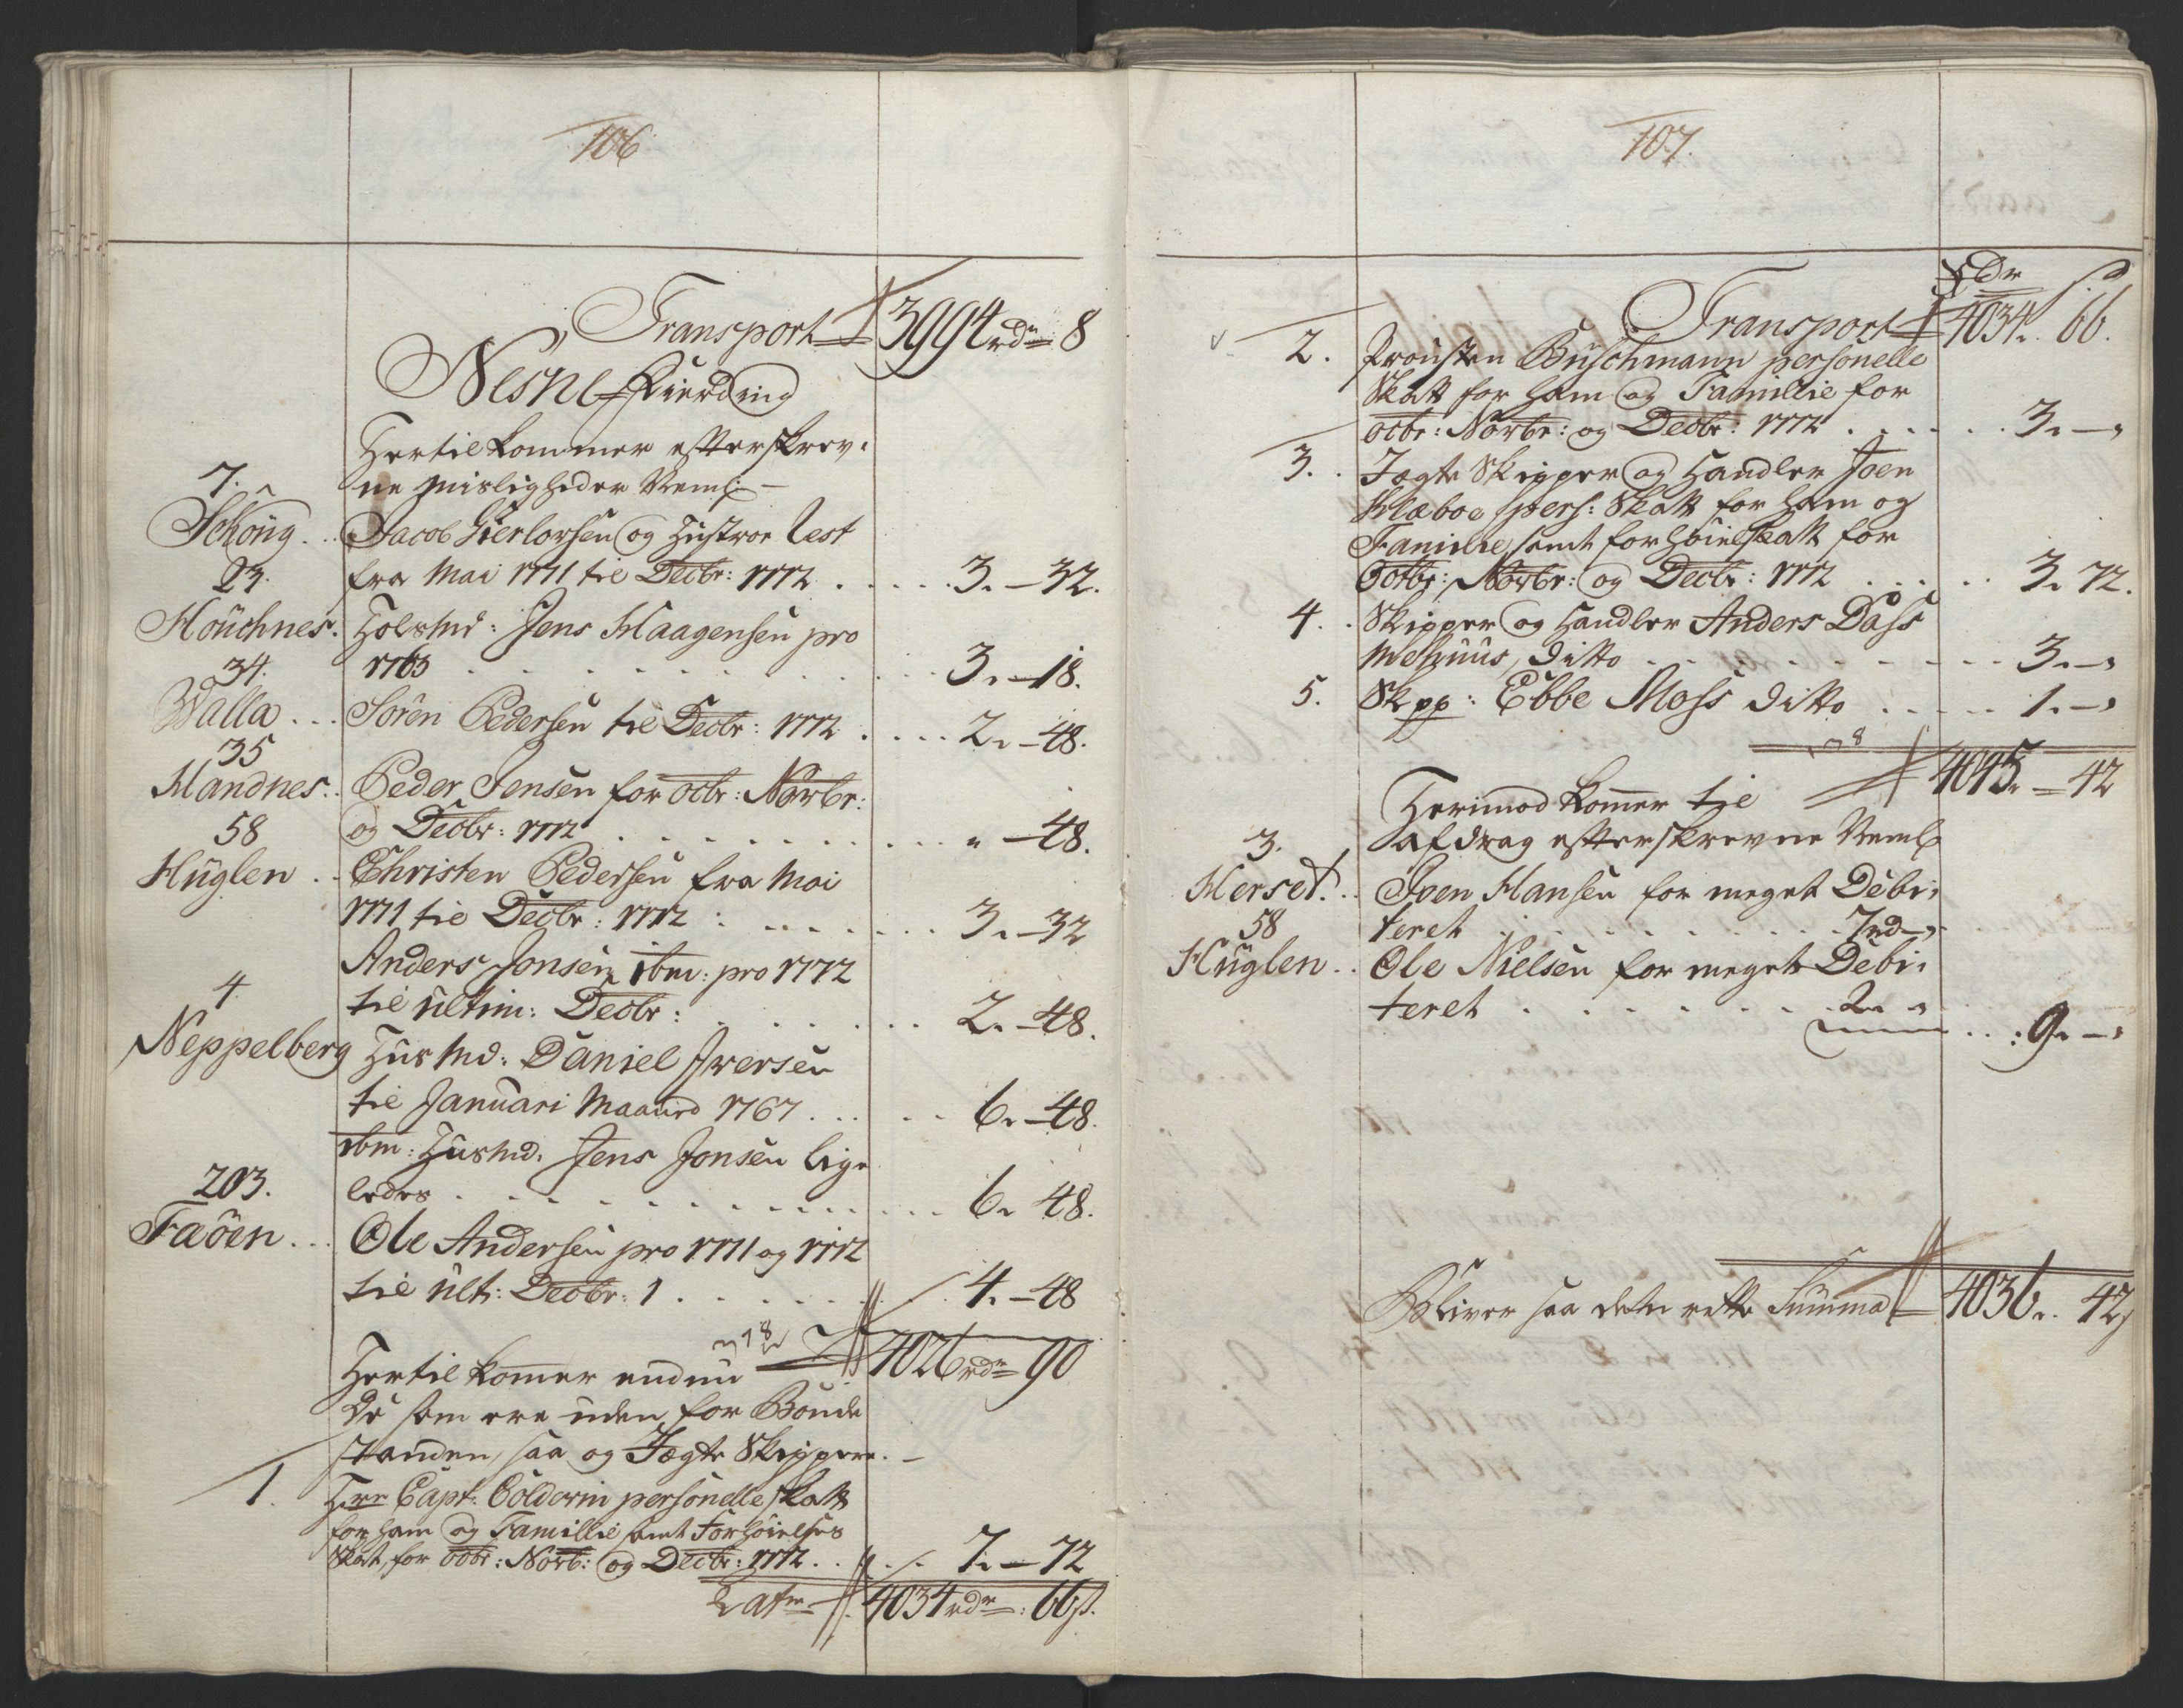 106
Transport 3994 rdr 8
Nesne Fierding
Hertil kommer efterskrev-
ne misligheder Neml:
7.
Schong . . Jacob Gierlorsen og Hustroe Rest
fra Mai 1771 til Decbr: 1772 . . . . . 3. - 32.
23.
Houchnes. Jens Haagensen pro
1763 . . . . . . . . 3. - 18.
34.
Walla . . . Sören Pedersen til Decbr: 1772 . . . . 2. - 48.
35
Handnes. . Peder Jensen for Octbr: Novbr:
og Decbr: 1772 . . . . . . . . . " - 48.
58
Huglen . . Christen Pedersen fra Mai
1771 til Decbr: 1772 . . . . . . 3. - 32
Anders Jonsen ibm: pro 1772
til ultim: Decbr: . . . . . . . 2. - 48.
4
Neppelberg Husmd: Daniel Iversen
til Januari Maaned 1767 . . . . 6. - 48.
ibm: Husmd: Jens Jonsen lige
ledes . . . . . . . . . 6. 48.
203.
Faöen . . . Ole Andersen pro 1771 og 1772
til ult: Decbr: 1 . . . . . . . 4. - 48
4026 rdr 90
Hertil kommer endnu
De som ere uden for Bonde
standen, saa og Jægte Skippere. -
1. Hrr Capt: Coldevin personelle Skatt
for ham og Famillie samt Forhöielses
Skat, for Octbr: Novb: og Decbr: 1772 . . 7. - 72
Latr 4034 rdr: 66 s.
107.
Rdr s
Transport 4034. 66.
2. Prousten Buschmann personelle
Skatt for ham og Famillie for
Octbr: Novbr: og Decbr: 1772 . . . . . . 3. -
3. . Jægte Skipper og Handler Joen
Klæboe pers: Skatt for ham og
Familie, samt forhöielskatt for
Octbr: Novbr: og Decbr: 1772 . . . . . 3. 72.
4. . Skipper og Handler Anders Dass
ditto . . . . . . . . . 3. -
5. Skpp: Ebbe Moss ditto . . . . . 1. -
4045. - 42
Herimod kommer til
Afdrag efterskrevne Neml:
3.
Herset. . Iven Hansen for meget Debi-
teret . . . . . . . . 7 rd -
58
Huglen . . Ole Nielsen for meget Debi-
teret . . . . . . . 2. "
. . : 9. -
Bliver saa dette rette Summa 4036. . 42